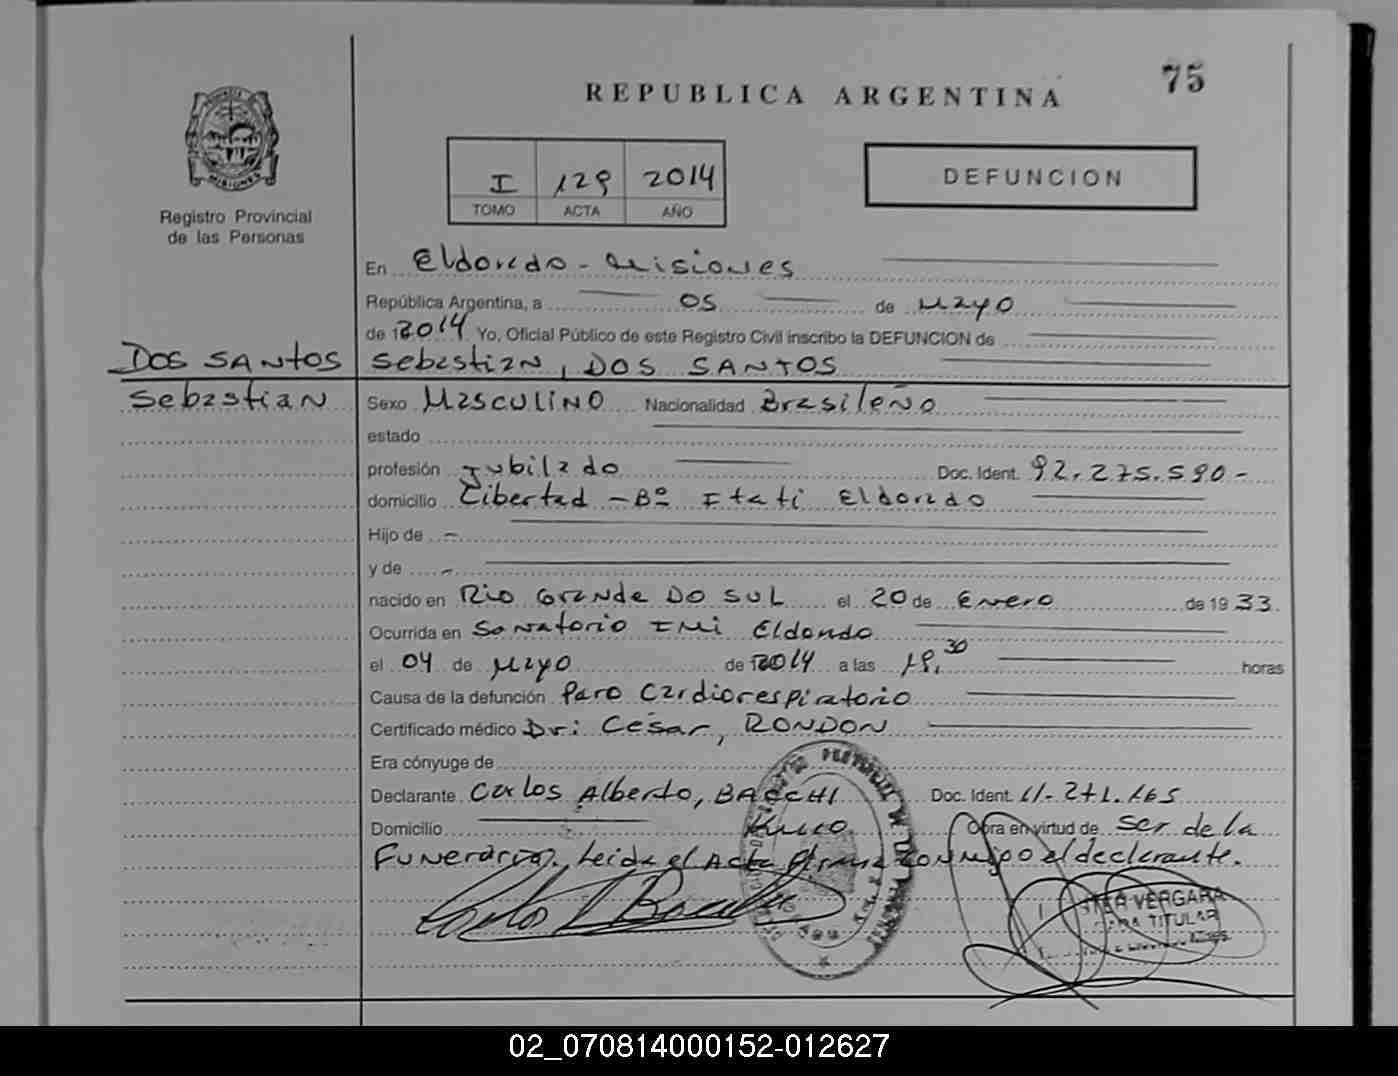 75
REPUBLICA ARGENTINA
PROVINCIA DE
MISIONES
Registro Provincial
de las Personas
I 129 2014
TOMO ACTA AÑO
DEFUNCION
En Eldorado - Misiones
República Argentina, a 05 de Mayo
de 2014 Yo, Oficial Público de este Registro Civil inscribo la DEFUNCION de
DOS SANTOS
Sebastian, DOS SANTOS
Sebastian
Sexo Masculino Nacionalidad Brasileño
estado
profesión Jubilado Doc. Ident. 92.275.590.-
domicilio Libertad - Bº Itati Eldorado
Hijo de -
y de -
nacido en Rio Grande DO SUL el 20 de Enero de 1933
Ocurrida en Sanatorio IMI Eldorado
el 04 de Mayo de 2014 a las 19,30 horas
Causa de la defunción Paro Cardiorespiratorio
Certificado médico Dr: Cesar, RONDON
Era cónyuge de
Declarante Carlos Alberto, BACCHI Doc. Ident. 11.271.165
Domicilio Obra en virtud de Ser de la
Funeraria. Leida el Acta firma conmigo el declarante.
VERGARA
TITULAR
02_070814000152-012627